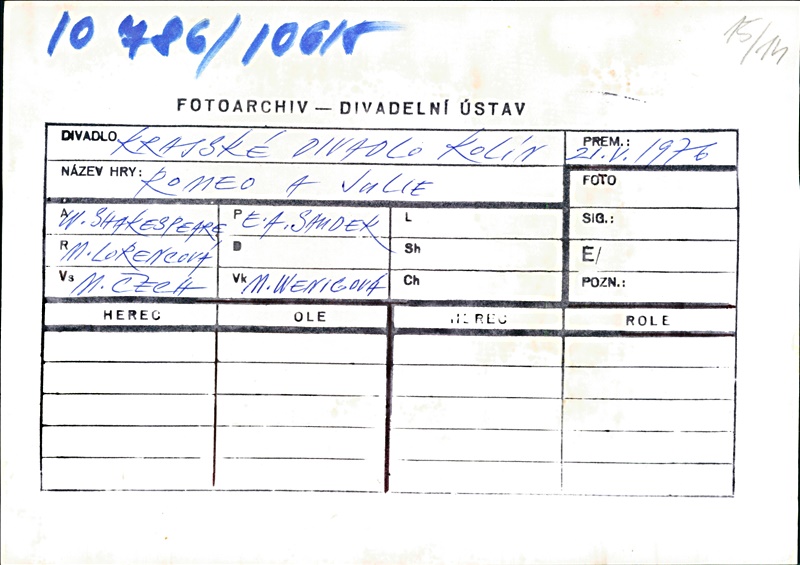 10 786/10615
15/14
FOTOARCHIV — DIVADELNÍ ÚSTAV
DIVADLO KRAJSKÉ DIVADLO KOLÍN
PREM.: 21.V.1976
NÁZEV HRY: ROMEO A JULIE
FOTO
A W. SHAKESPEARE
P E.A. SAUDEK
L
SIG.:
R M. LORENCOVÁ
D
Sh
E/
Vs M. CZECH
Vk M. WENIGOVÁ
Ch
POZN.:
HEREC OLE HEREC ROLE